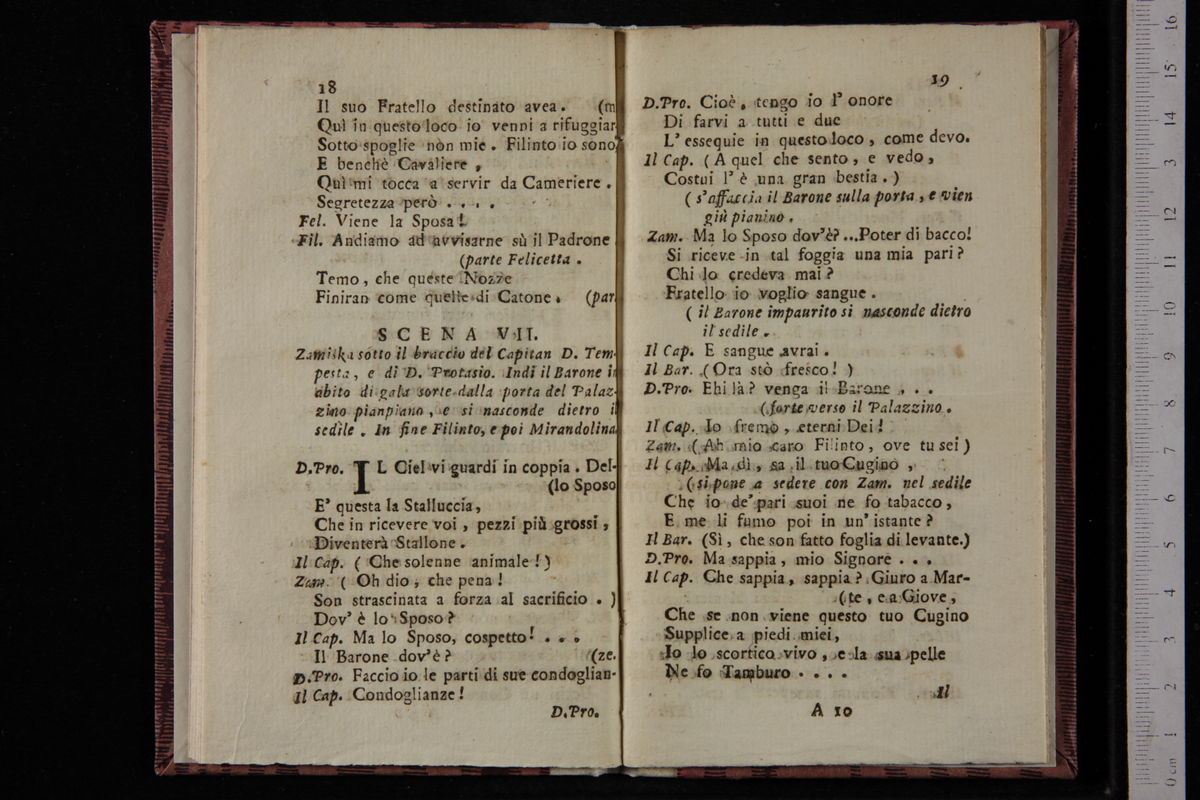 18
Il suo Fratello destinato avea. (m
Quì in questo loco io venni a rifuggiar
Sotto spoglie nòn mie. Filinto io sono
E benchè Cavaliere,
Quì mi tocca a servir da Cameriere.
Segretezza però . . . .
Fel. Viene la Sposa!
Fil. Andiamo ad avvisarne sù il Padrone
(parte Felicetta.
Temo, che queste Nozze
Finiran come quelle di Catone. (par.
SCENA VII.
Zamiska sotto il braccio del Capitan D. Tem-
pesta, e di D. Protasio. Indi il Barone in
abito di gala sorte dalla porta del Palaz-
zino pianpiano, e si nasconde dietro il
sedile. In fine Filinto, e poi Mirandolina.
D.Pro. IL Ciel vi guardi in coppia. Del-
(lo Sposo
E' questa la Stalluccia,
Che in ricevere voi, pezzi più grossi,
Diventerà Stallone.
Il Cap. ( Che solenne animale! )
Zam. ( Oh dio, che pena!
Son strascinata a forza al sacrificio. )
Dov' è lo Sposo?
Il Cap. Ma lo Sposo, cospetto! . . .
Il Barone dov'è? (ze.
D.Pro. Faccio io le parti di sue condoglian-
Il Cap. Condoglianze!
D.Pro.
19
D.Pro. Cioè, tengo io l' onore
Di farvi a tutti e due
L' essequie in questo loco, come devo.
Il Cap. ( A quel che sento, e vedo,
Costui l' è una gran bestia. )
( s'affaccia il Barone sulla porta, e vien
giù pianino.
Zam. Ma lo Sposo dov'è? ...Poter di bacco!
Si riceve in tal foggia una mia pari?
Chi lo credeva mai?
Fratello io voglio sangue.
( il Barone impaurito si nasconde dietro
il sedile.
Il Cap. E sangue avrai.
Il Bar. ( Ora stò fresco! )
D.Pro. Ehi là? venga il Barone . . .
( forte verso il Palazzino.
Il Cap. Io fremo, eterni Dei!
Zam. ( Ah mio caro Filinto, ove tu sei )
Il Cap. Ma dì, sa il tuo Cugino,
( si pone a sedere con Zam. nel sedile
Che io de' pari suoi ne fo tabacco,
E me li fumo poi in un' istante?
Il Bar. (Sì, che son fatto foglia di levante.)
D.Pro. Ma sappia, mio Signore . . .
Il Cap. Che sappia, sappia? Giuro a Mar-
( te, e a Giove,
Che se non viene questo tuo Cugino
Supplice a piedi miei,
Io lo scortico vivo, e la sua pelle
Ne fo Tamburo . . . .
Il
A 10
0 cm 1 2 3 4 5 6 7 8 9 10 11 12 13 14 15 16